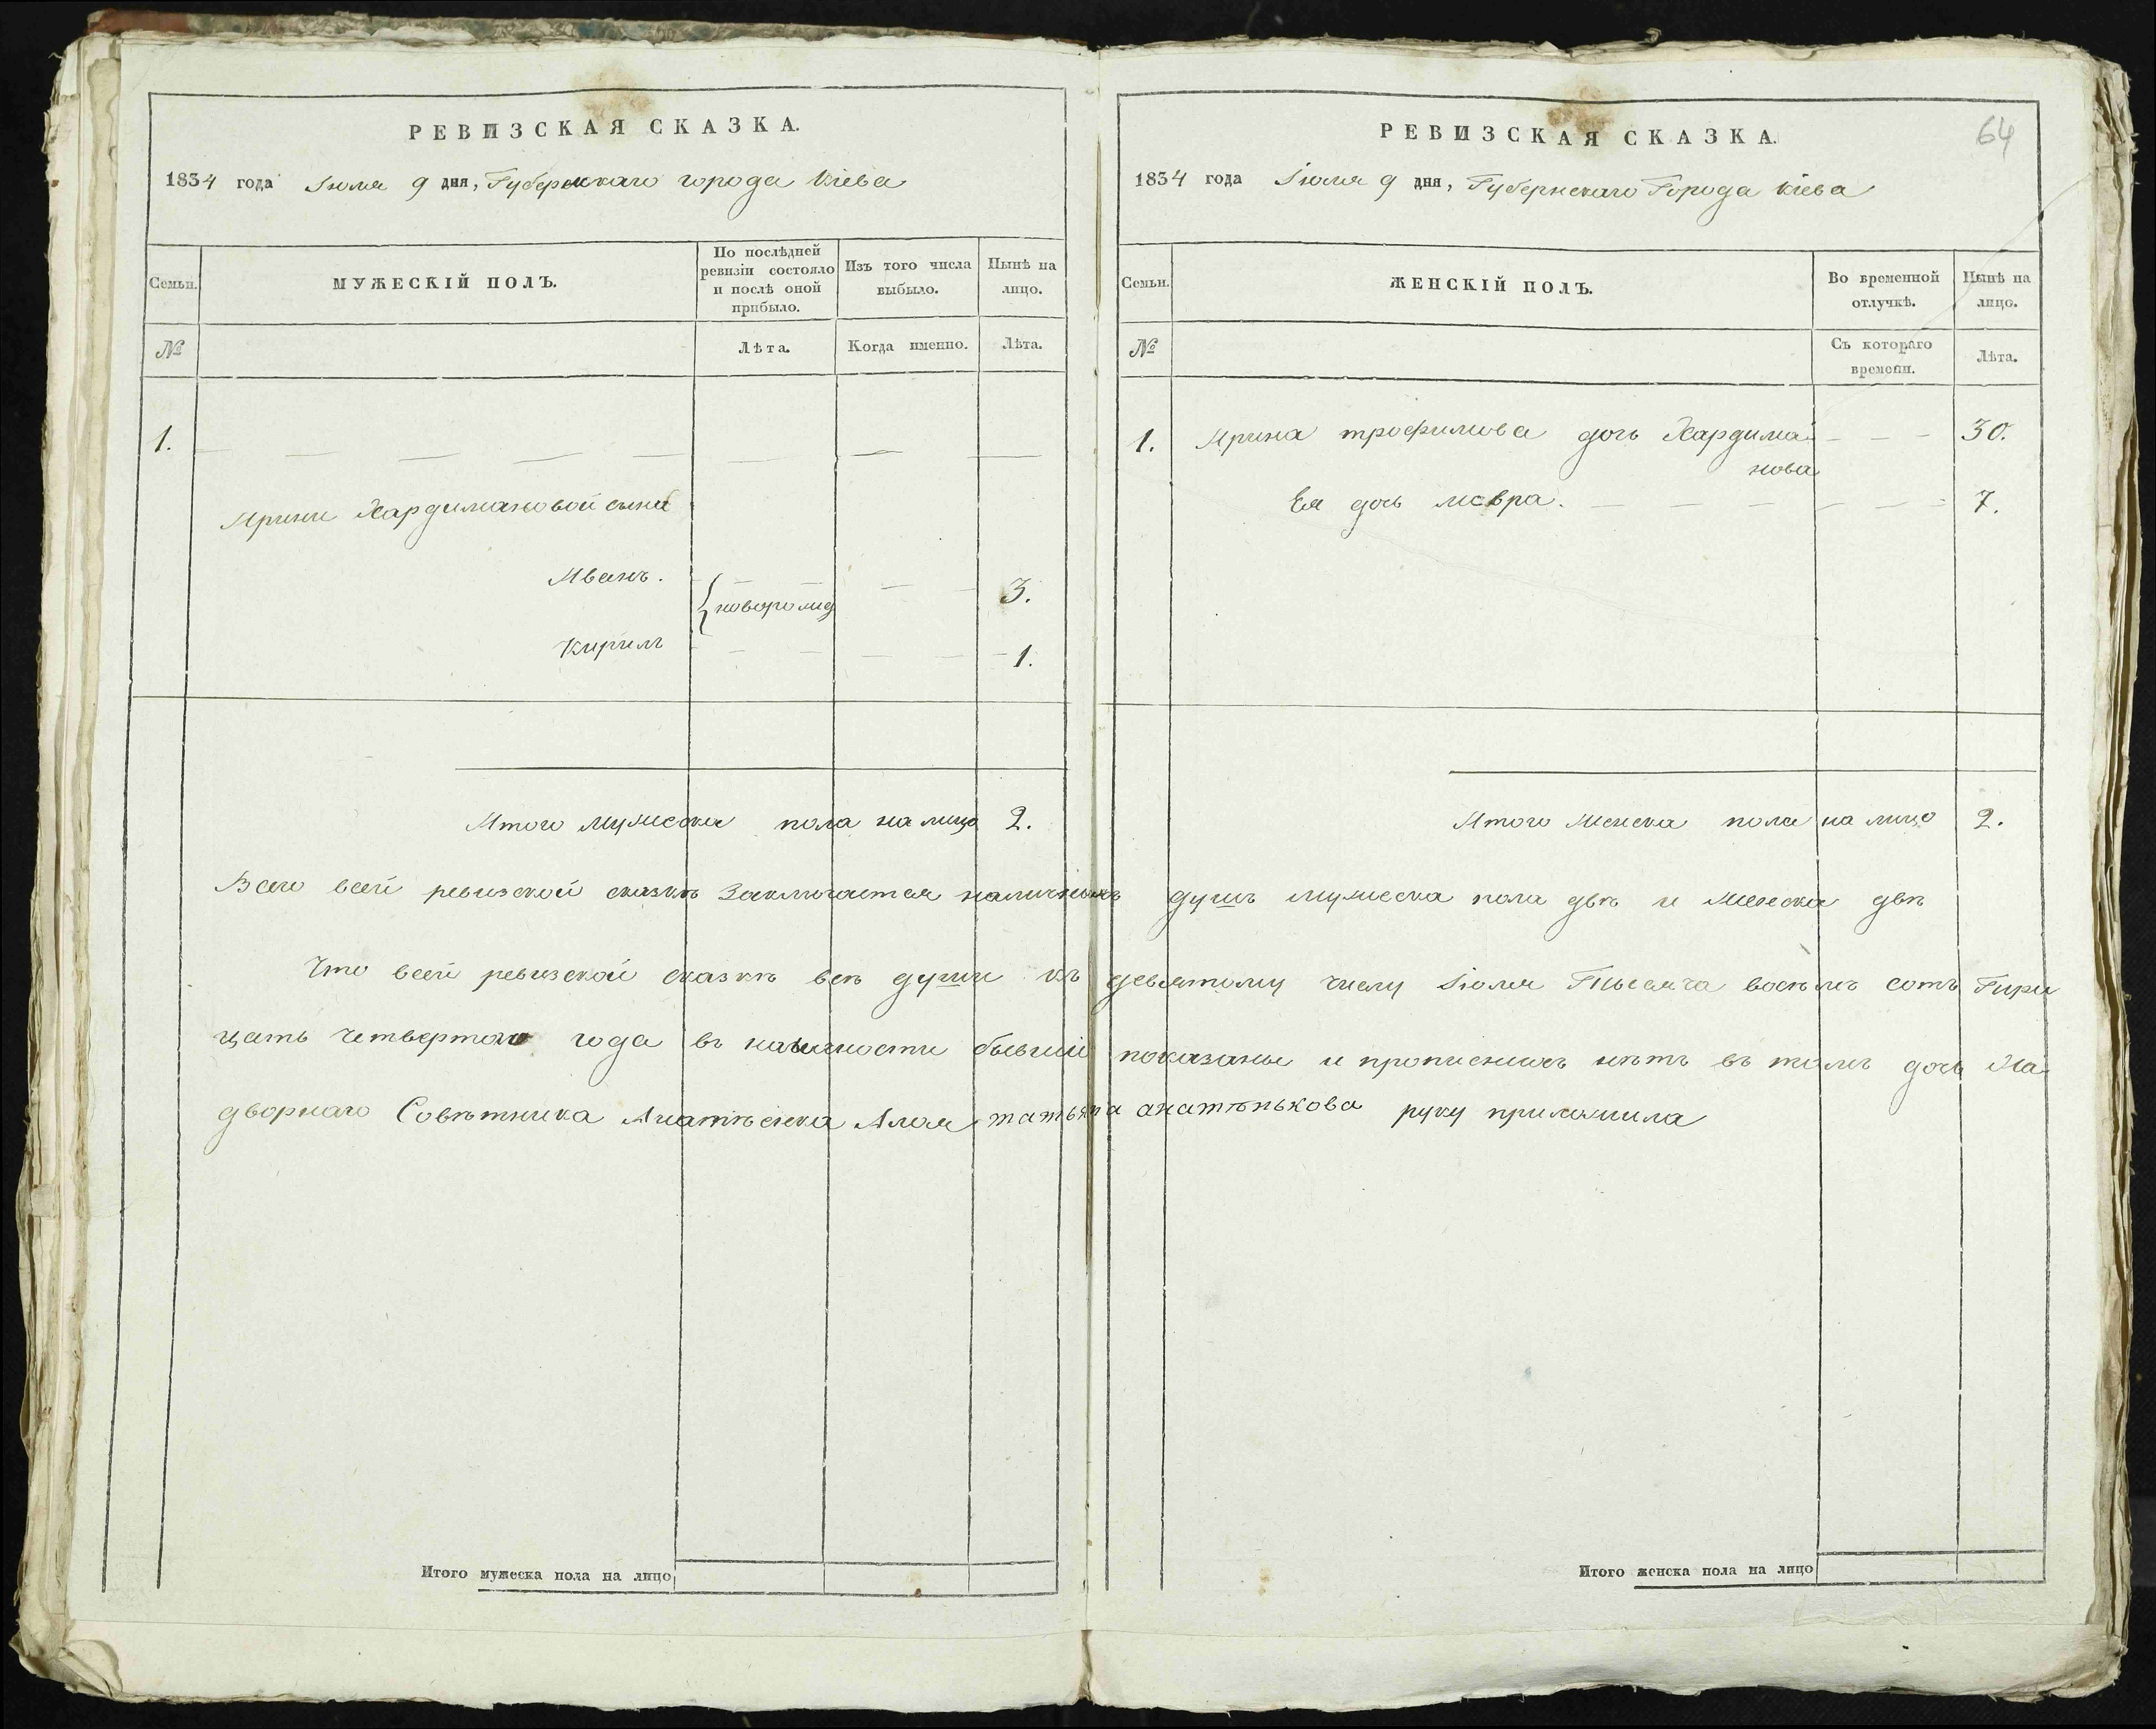 РЕВИЗСКАЯ СКАЗКА.
1834 года Іюля 9 дня, Губернскаго города Кіева
Семьи. МУЖЕСКІЙ ПОЛЪ. По послѣдней ревизіи состояло и послѣ оной прибыло. Изъ того числа выбыло. Нынѣ на лицо.
№ Лѣта. Когда именно. Лѣта.
1.
Ирини Хардимановой сини
Иванъ. 3.
новорожд
Кирилъ 1.
Итого мужеска пола на лицо 2.
РЕВИЗСКАЯ СКАЗКА.
64
1834 года Іюля 9 дня, Губернскаго Города Кіева
Семьи. ЖЕНСКІЙ ПОЛЪ. Во временной отлучкѣ. Нынѣ на лицо.
№ Съ котораго времени. Лѣта.
1. Ирина трофимова дочь Хардима- 30.
нова
Ея дочь мавра. 7.
Итого женска пола на лицо 2.
Всего всей ревизской сказкѣ Заключается наличныхъ душъ мужеска пола двѣ и женска двѣ
Что всей ревизской сказкѣ всѣ души къ девятому числу Іюля Тысяча восемъ сотъ Тири
цать четвертого года въ наличности бывши показаны и прописныхъ нѣтъ въ томъ дочь На
дворнаго Совѣтника татьяна анатѣнькова руку приложила
Итого мужеска пола на лицо
Итого женска пола на лицо